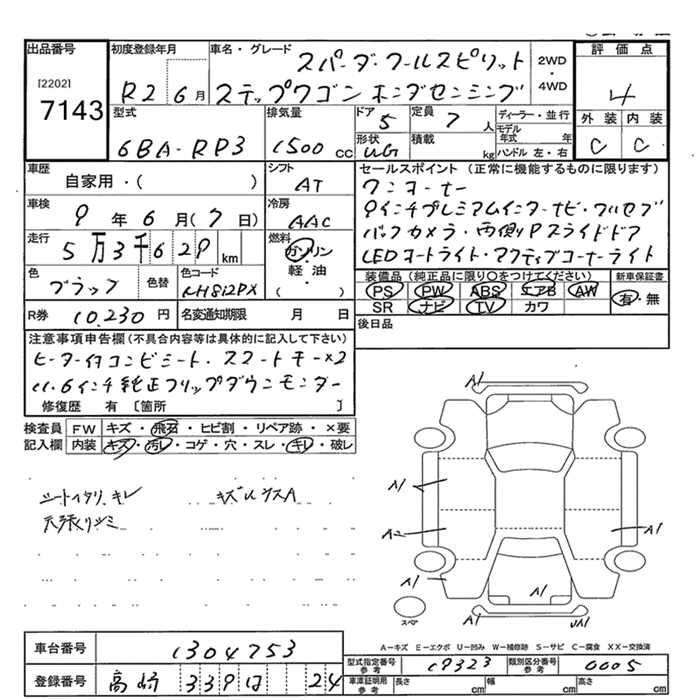 出品番号 初度登録年月 車名・グレード スパーダ・クールスピリット 2WD・4WD 評価点
[2202]
7143 R2 6月 ステップワゴン ホンダセンシング 4
型式 排気量 ドア 定員 ディーラー・並行 外装 内装
6BA-RP3 1500 cc 5 7 人 モデル年式 年 C C
形状 UG 積載 kg ハンドル 左・右
車歴 シフト セールスポイント(正常に機能するものに限ります)
自家用・( ) AT ワンオーナー
車検 9年6月(7日) 冷房 AAC 9インチプレミアムインターナビ・フルセグ
走行 5万3千629km 燃料 ガソリン・軽・油・( ) バックカメラ・両側Pスライドドア
LEDオートライト・アクティブコーナーライト
色 ブラック 色替 色コード NH812PX 装備品(純正品に限り○をつけてください) 新車保証書
PS PW ABS エアB AW 有・無
SR ナビ TV カワ
R券 10,230円 名変通知期限 月 日 後日品
注意事項申告欄(不具合内容等は具体的に記入して下さい)
ヒーター付コンビシート、スマートキー×2
11.6インチ純正フリップダウンモニター
修復歴 有 [箇所 ]
検査員 FW キズ・飛石・ヒビ割・リペア跡・×要
記入欄 内装 キズ・汚レ・コゲ・穴・スレ・キレ・破レ
シートヘタリ、キレ
天張リシミ
A1
A1
A2
A1
A1
A1
スペア
A-キズ E-エクボ U-凹み W-補修跡 S-サビ C-腐食 XX-交換済
車台番号 1304753
型式指定番号 参考 19323 類別区分番号 参考 0005
登録番号 高崎 339 24
車庫証明用 参考 長さ cm 幅 cm 高さ cm